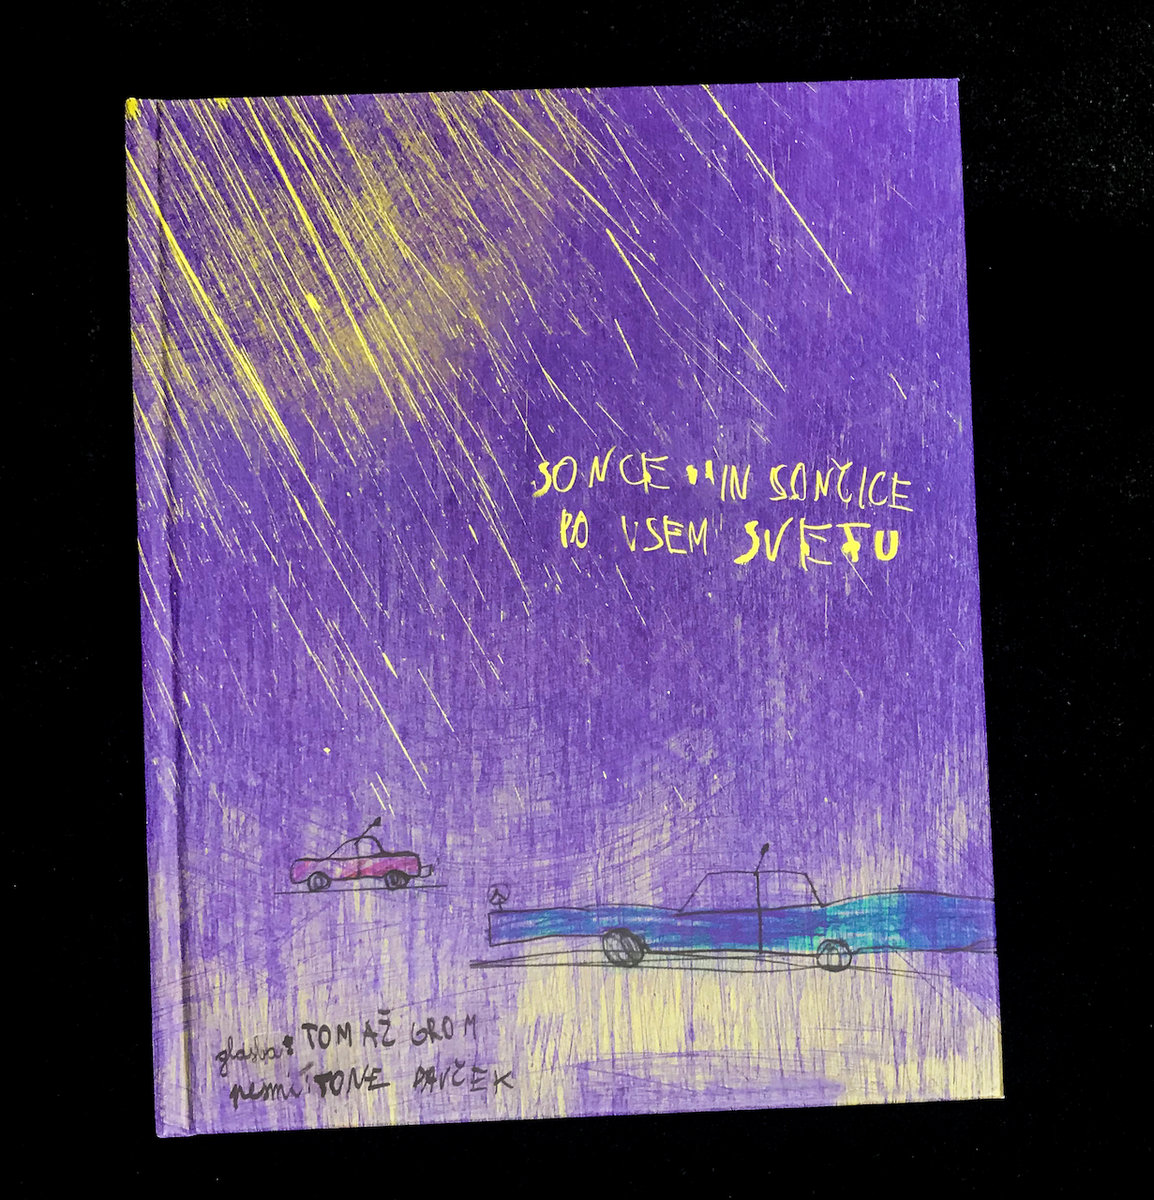 SONCE IN SONČICE
PO VSEM SVETU
glasba: TOMAŽ GROM
pesmi: TONE PAVČEK